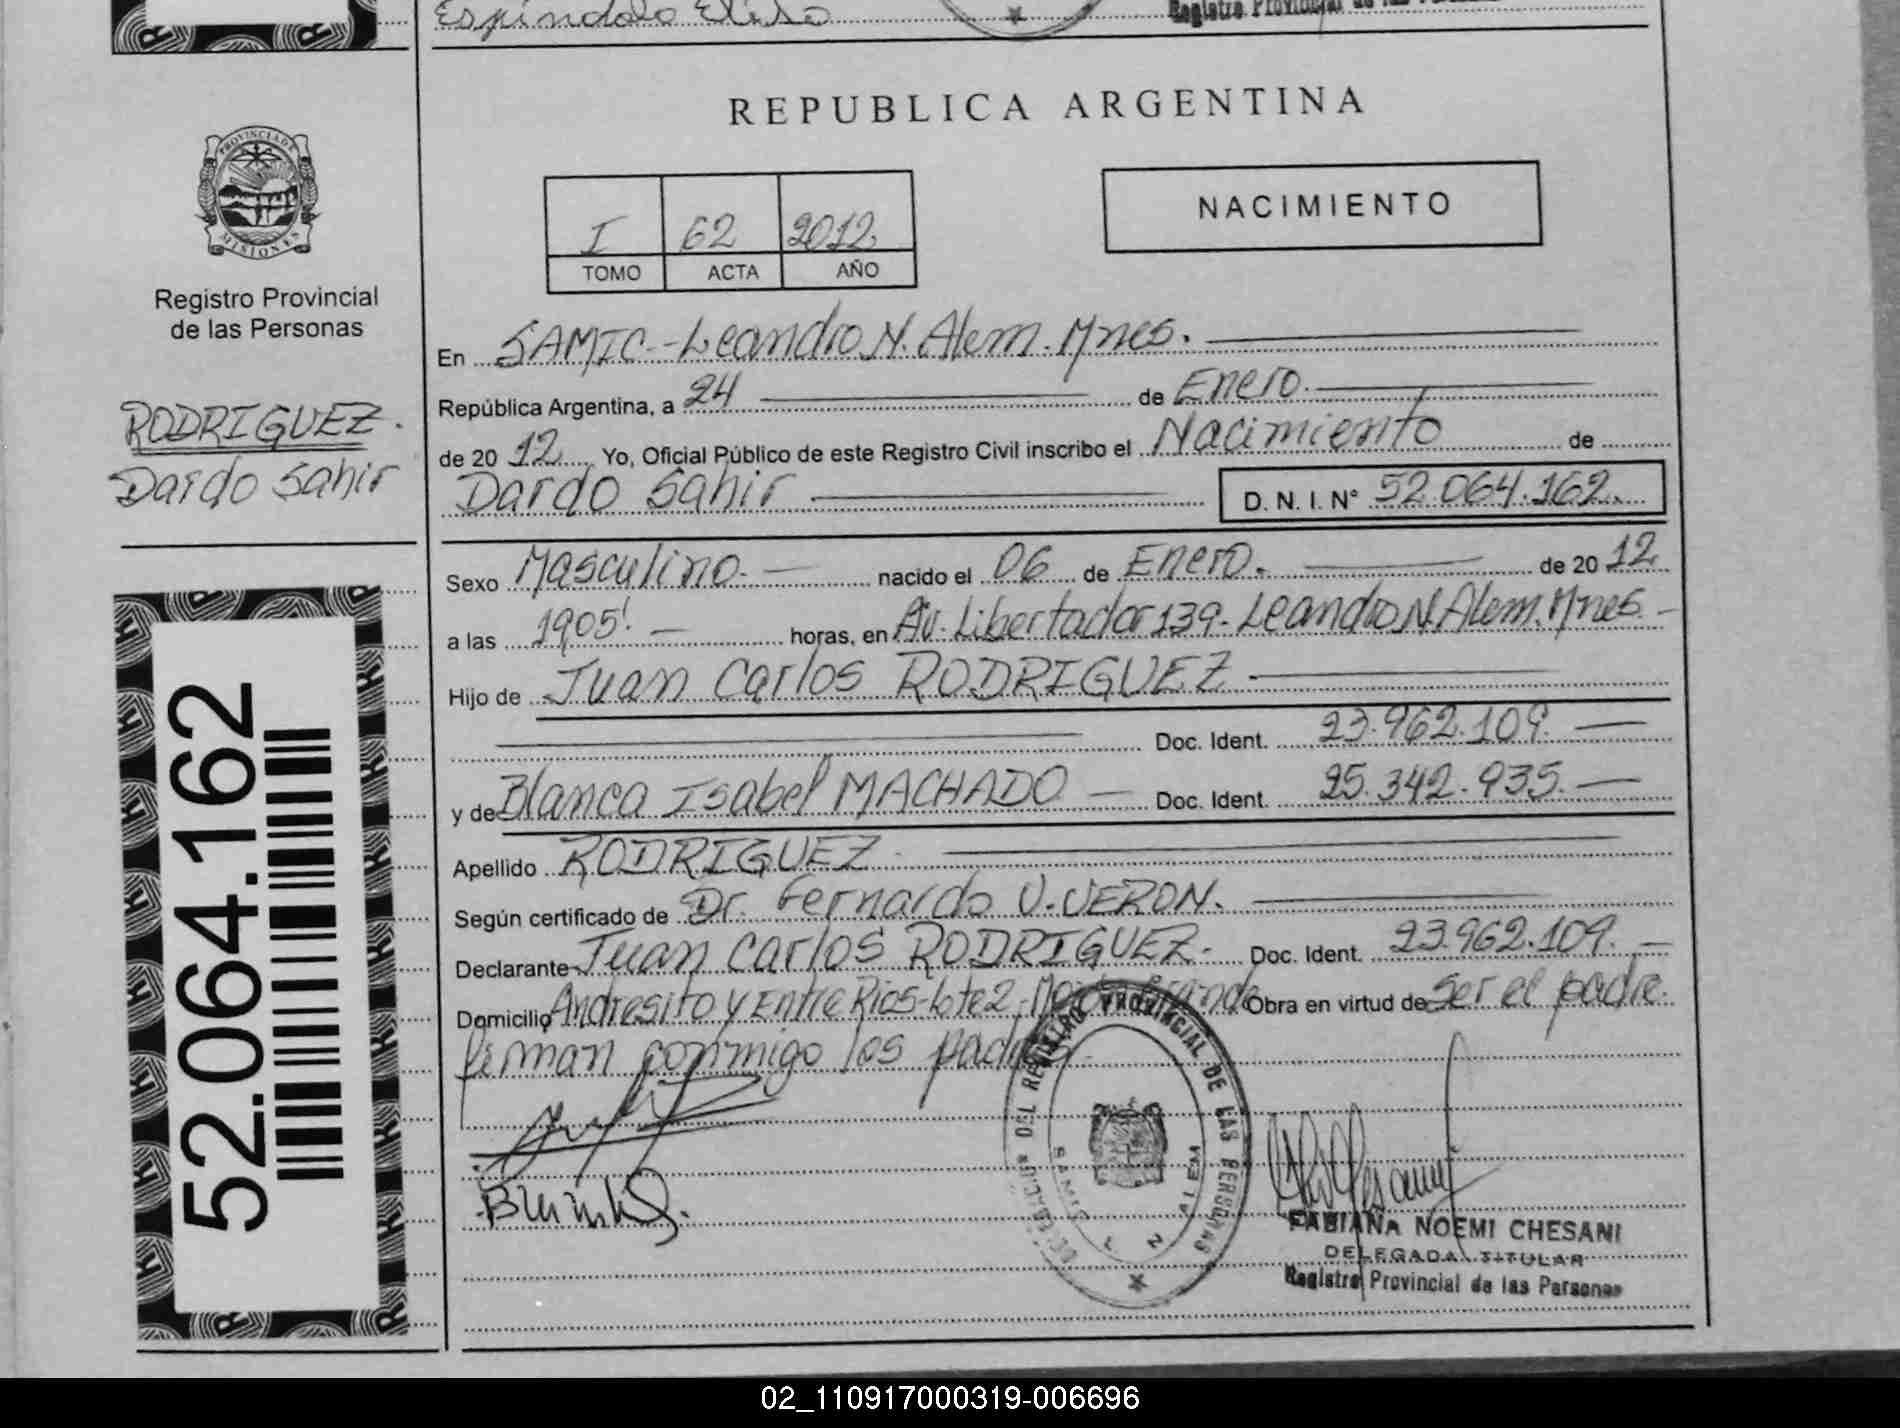 Espíndola
Registro Provincial de las Personas
REPUBLICA ARGENTINA
PROVINCIA DE
MISIONES
Registro Provincial
de las Personas
RODRIGUEZ.
Dardo Sahir
I 62 2012
TOMO ACTA AÑO
NACIMIENTO
En SAMIC - Leandro N. Alem. Mnes.
República Argentina, a 24 de Enero.
de 20 12 Yo, Oficial Público de este Registro Civil inscribo el Nacimiento de
Dardo Sahir D. N. I. N° 52.064.162.
Sexo Masculino. nacido el 06 de Enero. de 20 12
a las 1905'. horas, en Av. Libertador 139 - Leandro N. Alem. Mnes. -
Hijo de Juan Carlos RODRIGUEZ
Doc. Ident. 23.962.109.
y de Blanca Isabel MACHADO Doc. Ident. 25.342.935.
Apellido RODRIGUEZ
Según certificado de Dr. Fernando V. VERON.
Declarante Juan Carlos RODRIGUEZ - Doc. Ident. 23.962.109.
Domicilio Andresito y Entre Rios - lote 2 - Obra en virtud de Ser el padre.
firman conmigo los padres.
52.064.162
DEL REGISTRO PROVINCIAL DE LAS PERSONAS
SAMIC L N ALEM
FABIANA NOEMI CHESANI
DELEGADA TITULAR
Registro Provincial de las Personas
02_110917000319-006696